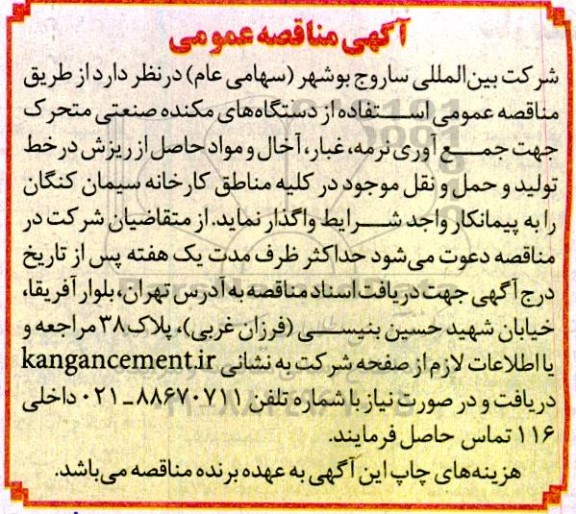 آگهی مناقصه عمومی
شرکت بین‌المللی ساروج بوشهر (سهامی عام) درنظر دارد از طریق
مناقصه عمومی استفاده از دستگاه‌های مکنده صنعتی متحرک
جهت جمع آوری نرمه، غبار، آخال و مواد حاصل از ریزش در خط
تولید و حمل و نقل موجود در کلیه مناطق کارخانه سیمان کنگان
را به پیمانکار واجد شرایط واگذار نماید. از متقاضیان شرکت در
مناقصه دعوت می‌شود حداکثر ظرف مدت یک هفته پس از تاریخ
درج آگهی جهت دریافت اسناد مناقصه به آدرس تهران، بلوار آفریقا،
خیابان شهید حسین بنیسی (فرزان غربی)، پلاک ۳۸ مراجعه و
یا اطلاعات لازم از صفحه شرکت به نشانی kangancement.ir
دریافت و در صورت نیاز با شماره تلفن ۸۸۶۷۰۷۱۱-۰۲۱ داخلی
۱۱۶ تماس حاصل فرمایند.
هزینه‌های چاپ این آگهی به عهده برنده مناقصه می‌باشد.